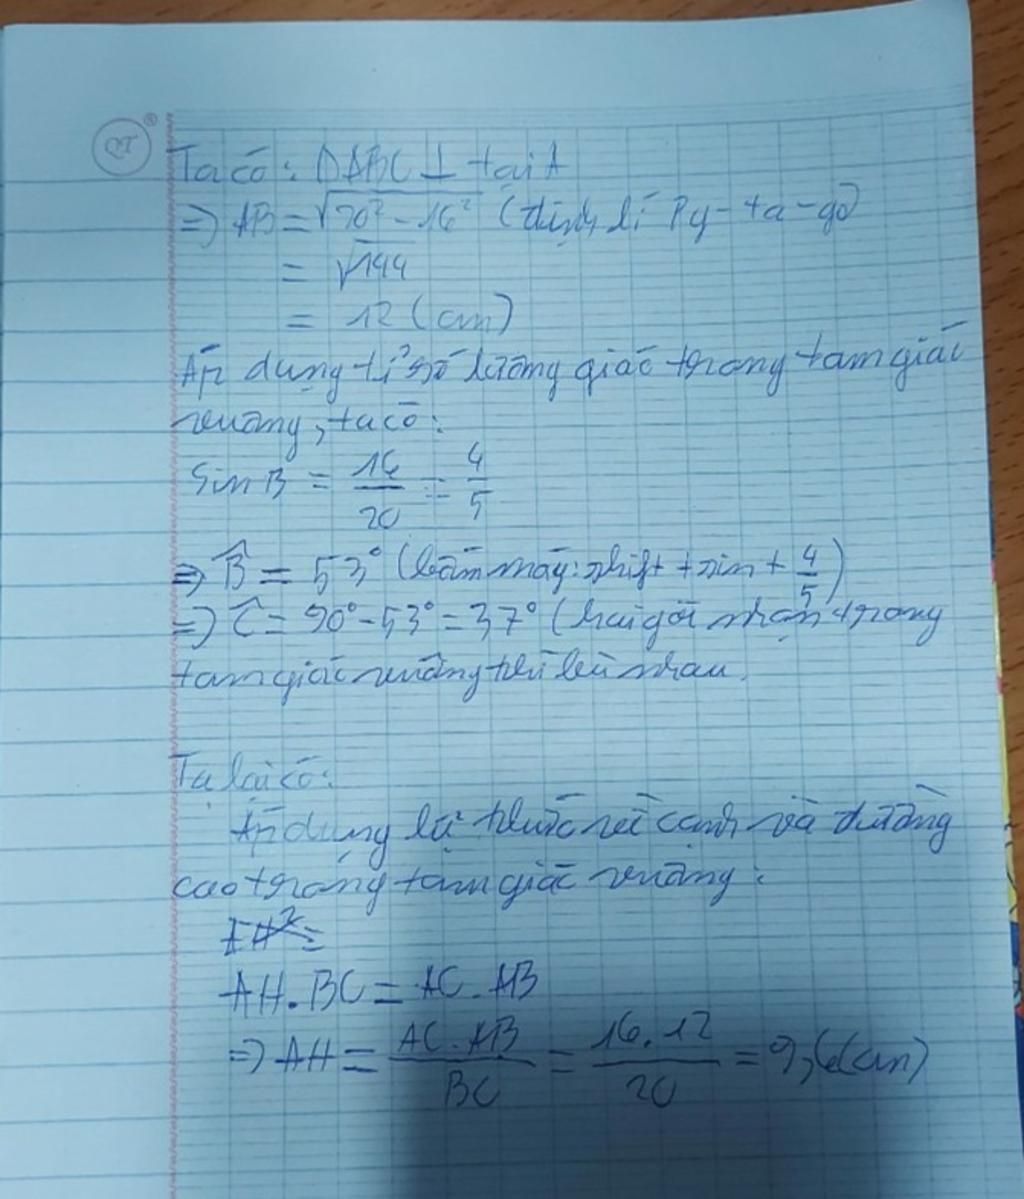 QT
Ta có: ΔABC ⊥ tại A
=> AB = √20² - 16² (định lí Py-ta-go)
= √144
= 12 (cm)
Áp dụng tỉ số lượng giác trong tam giác
vuông, ta có:
Sin B = 16/20 = 4/5
=> B̂ = 53° (bấm máy: shift + sin + 4/5)
=> Ĉ = 90° - 53° = 37° (hai góc nhọn trong
tam giác vuông thì bù nhau.
Ta lại có:
Áp dụng hệ thức về cạnh và đường
cao trong tam giác vuông:
AH.BC = AC.AB
=> AH = AC.AB/BC = 16.12/20 = 9,6(cm)